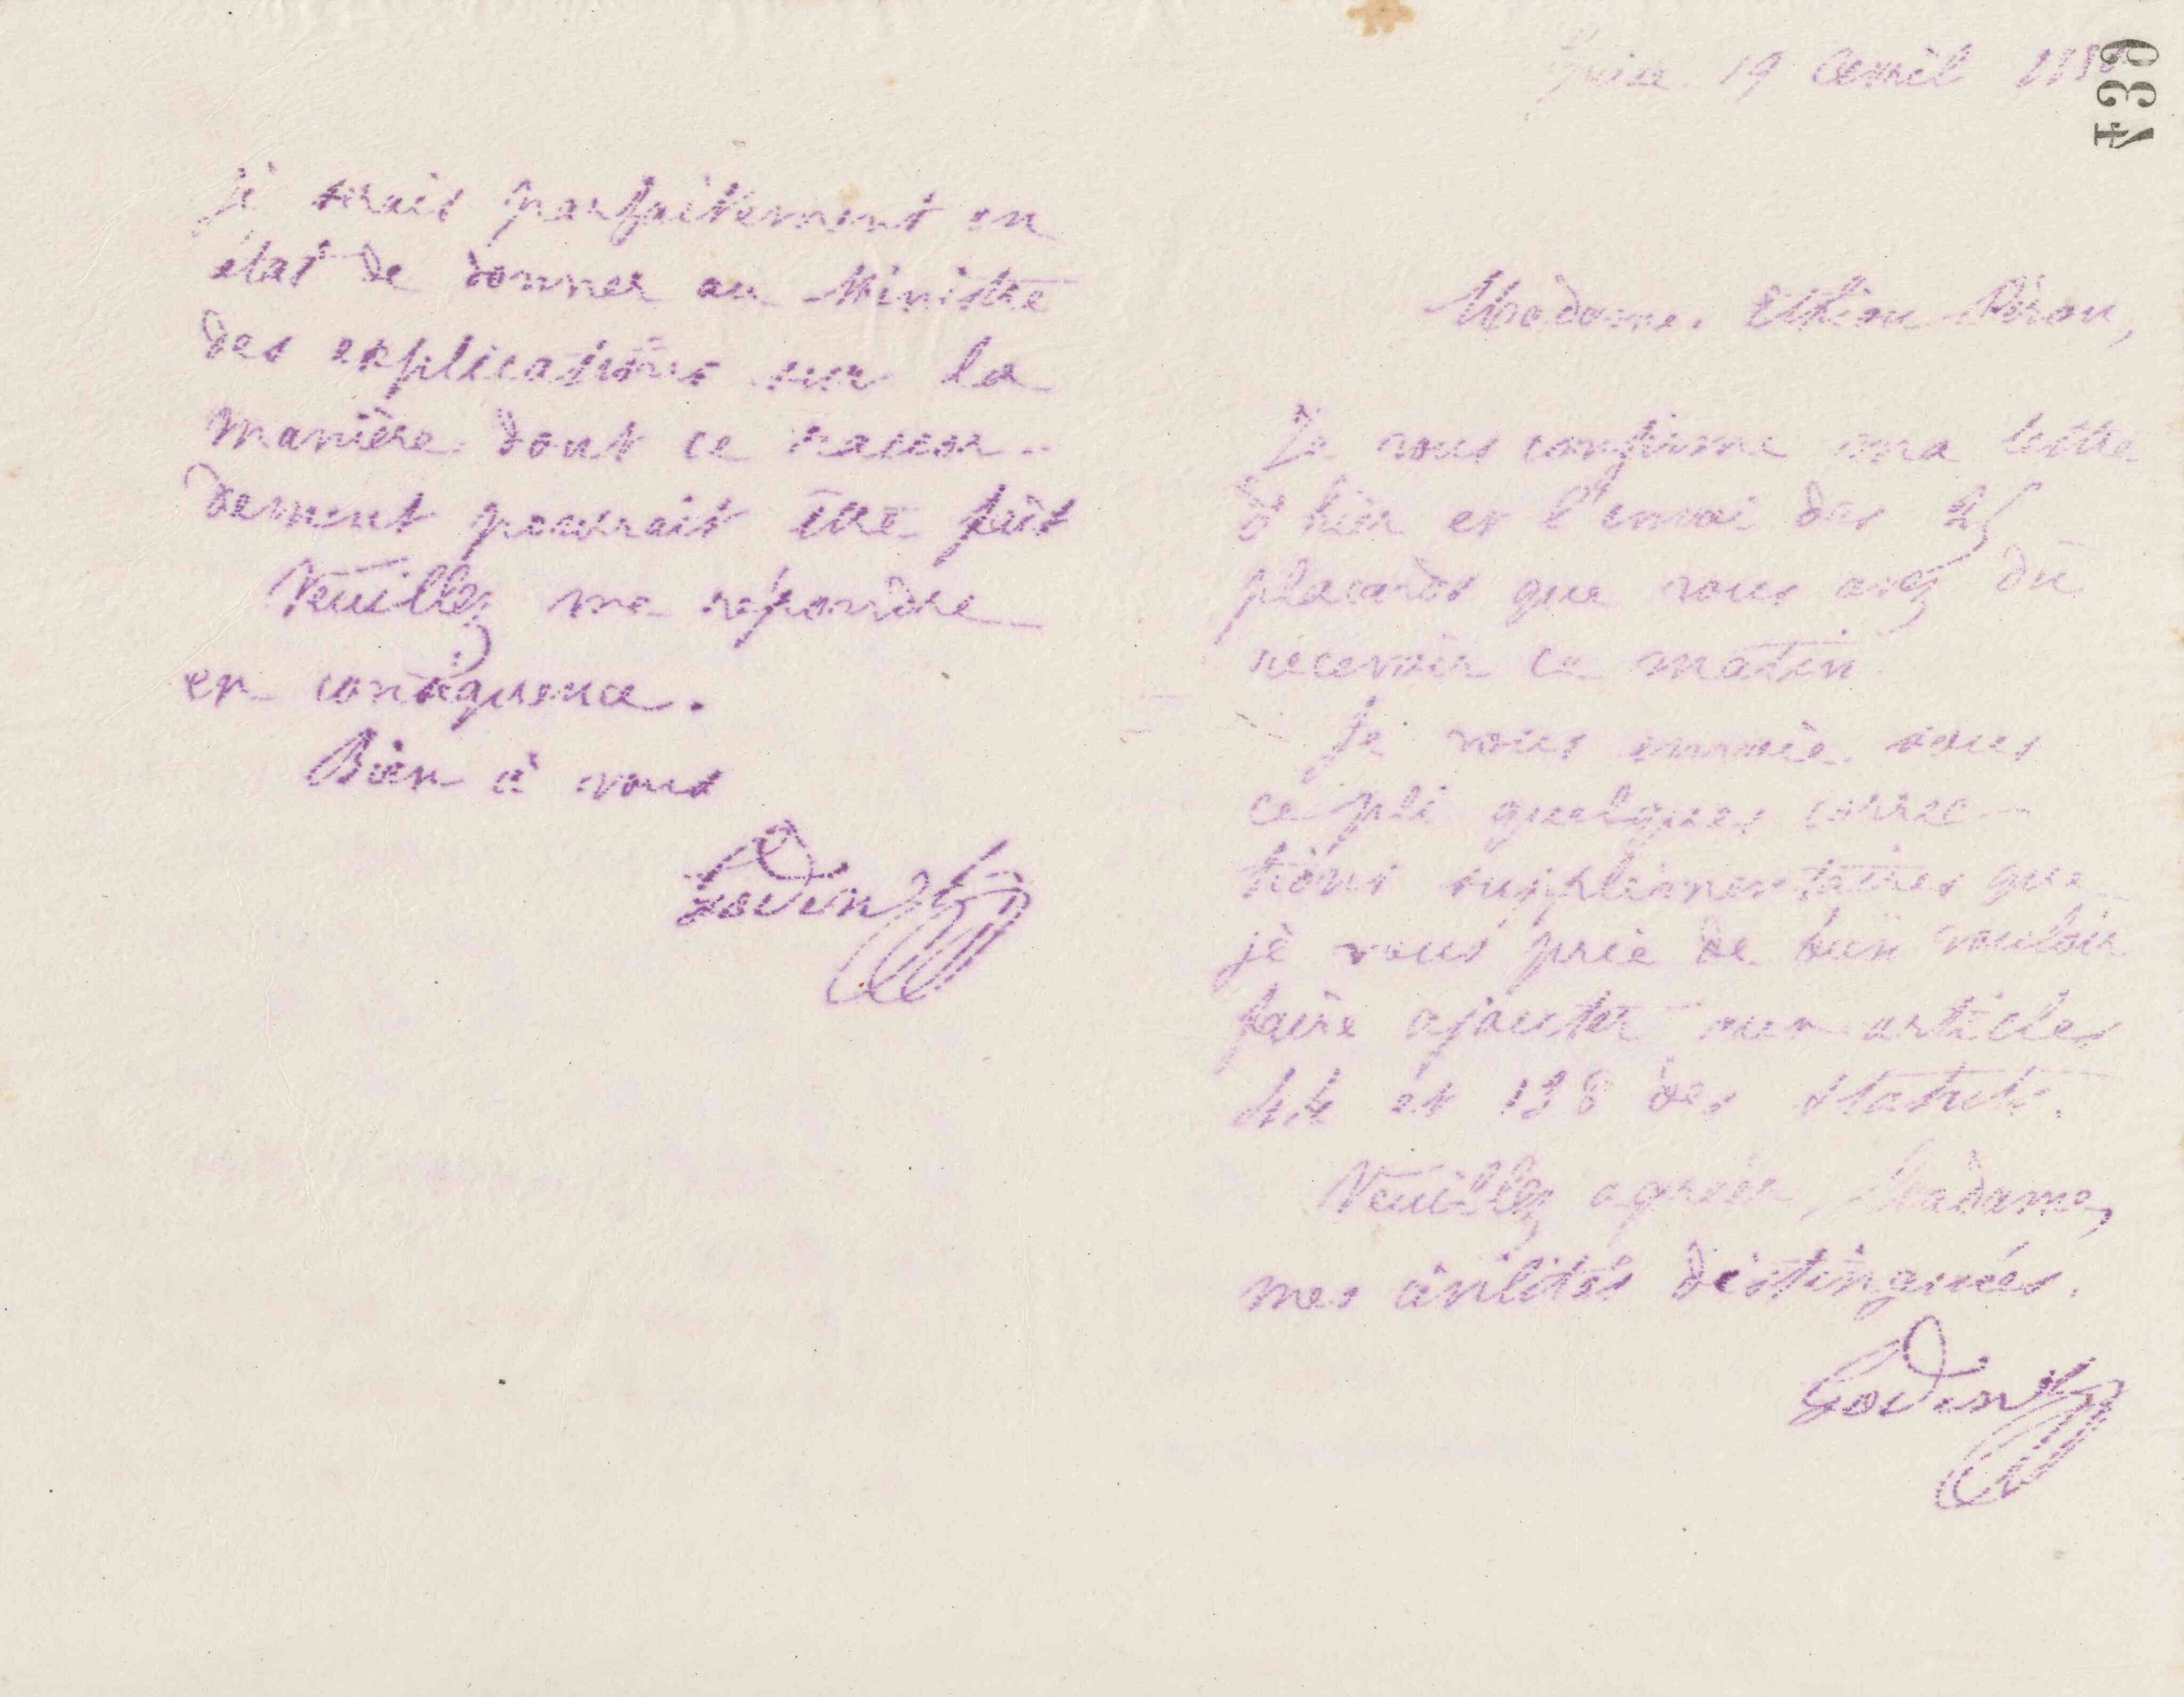 je serais parfaitement en
état de donner au Ministre
des explications sur la
manière dont ce raccor-
dement pourrait être fait
Veuillez me répondre
en conséquence.
Bien à vous
Godin
439
Guise 19 Avril
Madame
Je vous confirme ma lettre
d'hier et l'envoi des 25
placards que vous avez dû
recevoir ce matin
Je vous envoie sous
ce pli quelques correc-
tions supplémentaires que
je vous prie de bien vouloir
faire ajouter aux articles
44 et 138 des statuts.
Veuillez agréer, Madame,
mes civilités distinguées.
Godin